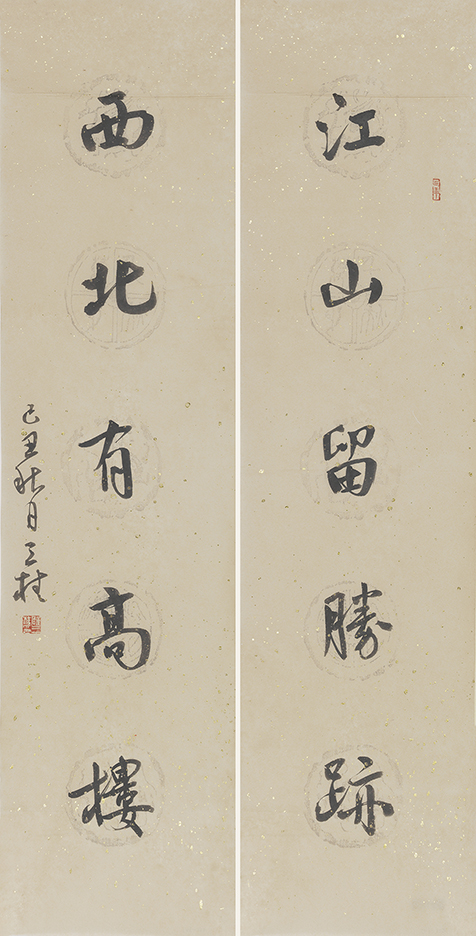 江山留勝跡
西北有高樓
己丑秋月三柱